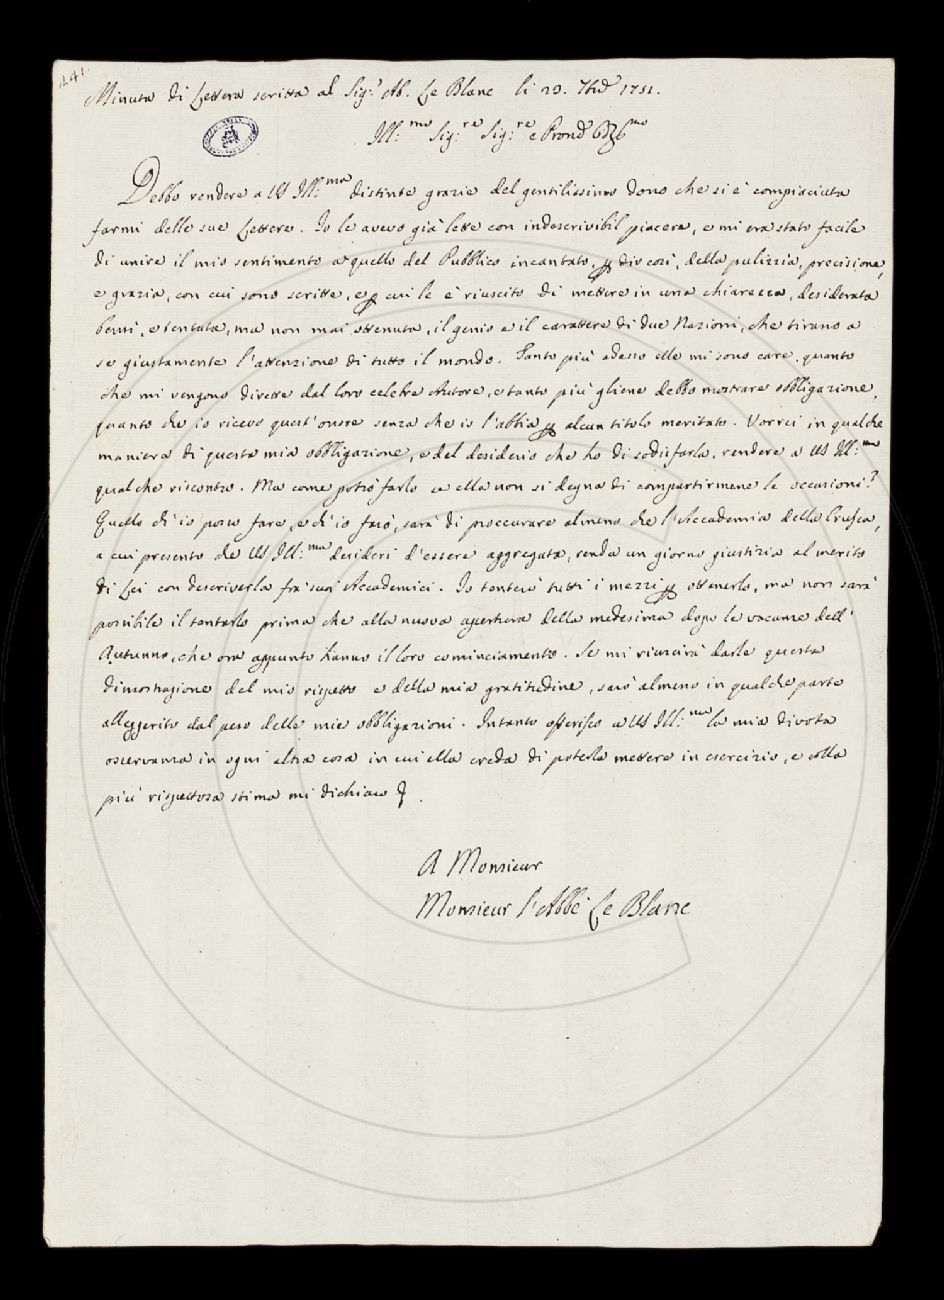 Minuta di Lettera scritta al Sig.r Ab. Le Blanc li 20. 7bre 1751.
Ill:mo Sig:re Sig:re e Pron
Debbo rendere a VS Ill:ma distinte grazie del gentilissimo dono che si è compiaciuta
farmi delle sue Lettere. Io le avevo già lette con indescrivibil piacere, e mi era stato facile
di unire il mio sentimento a quello del Pubblico incantato, p dir così, della pulizzia, precisione,
e grazia, con cui sono scritte, e p cui le è riuscito di mettere in una chiarezza, desiderata
bensi, e tentata, ma non mai ottenuta, il genio e il carattere di due Nazioni, che tirano a
se giustamente l'attenzione di tutto il mondo. Tanto più adesso elle mi sono care, quanto
che mi vengono dirette dal loro celebre Autore, e tanto più gliene debbo mostrare obbligazione,
quanto che io ricevo quest'onore senza che io l'abbia p alcun titolo meritato. Vorrei in qualche
maniera di questa mia obbligazione, e del desiderio che ho di sodisfarla, rendere a VS Ill:ma
qualche riscontro. Ma come potrò farlo se ella non si degna di compartirmene le occasioni?
Quello ch'io posso fare, e ch'io farò, sarà di proccurare almeno che l'Accademia della Crusca,
a cui presento che VS Ill:ma desideri d'essere aggregata, renda un giorno giustizia al merito
di Lei con descriverla fra' suoi Accademici. Io tenterò tutti i mezzi p ottenerlo, ma non sarà
possibile il tentarlo prima che alla nuova apertura della medesima dopo le vacanze dell'
Autunno, che ora appunto hanno il loro cominciamento. Se mi riuscirà darle questa
dimostrazione del mio rispetto e della mia gratitudine, sarò almeno in qualche parte
alleggerito dal peso delle mie obbligazioni. Intanto offerisco a VS Ill:ma la mia divota
osservanza in ogni altra cosa in cui ella creda di poterla mettere in esercizio, e colla
più rispettosa stima mi dichiaro
A Monsieur
Monsieur l'Abbé Le Blanc